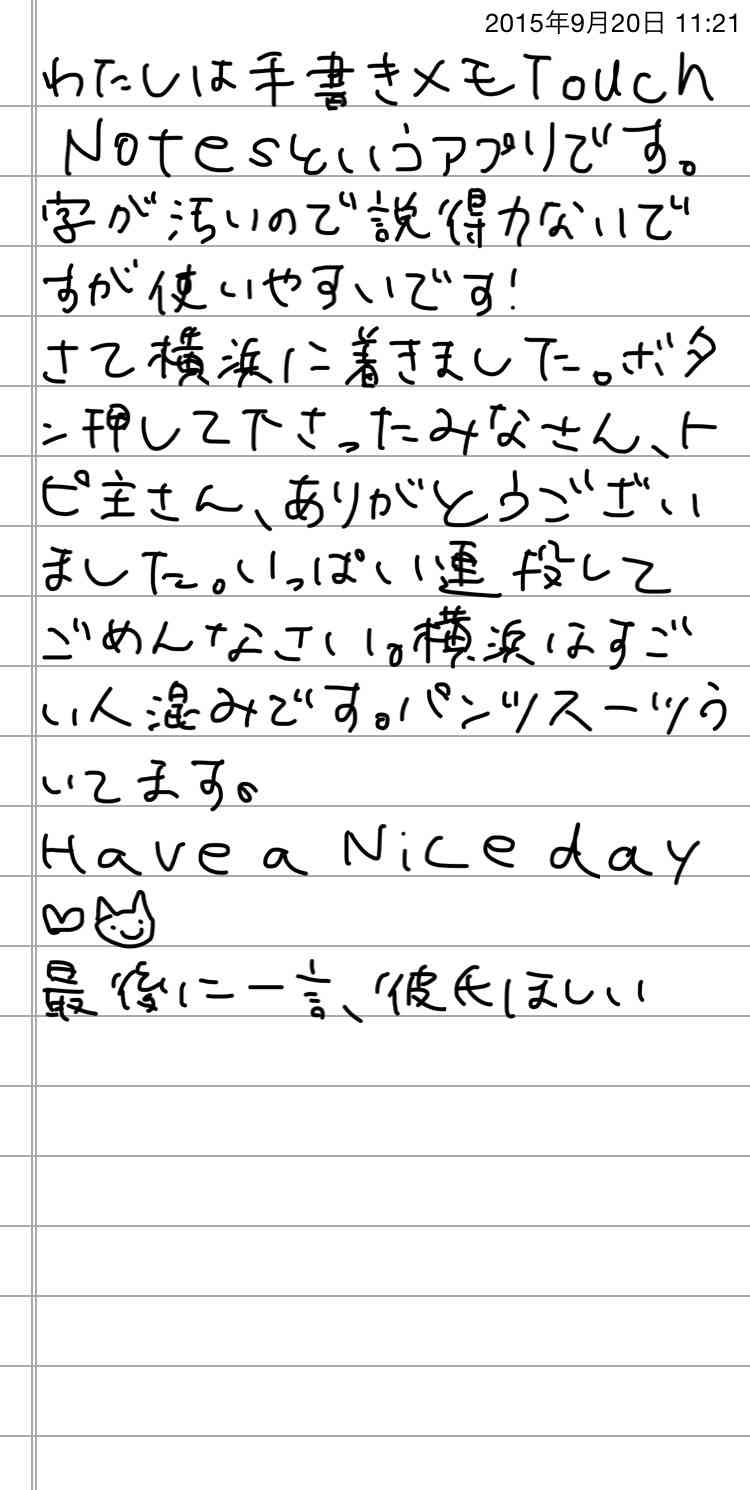 2015年9月20日 11:21
わたしは手書きメモTouch
Notesというアプリです。
字が汚いので説得力ないで
すが使いやすいです!
さて横浜に着きました。ボタ
ン押して下さったみなさん、ト
ピ主さん、ありがとうござい
ました。いっぱい連投して
ごめんなさい。横浜はすご
い人混みです。パンツスーツう
いてます。
Have a Nice day
♡
最後に一言、彼氏ほしい